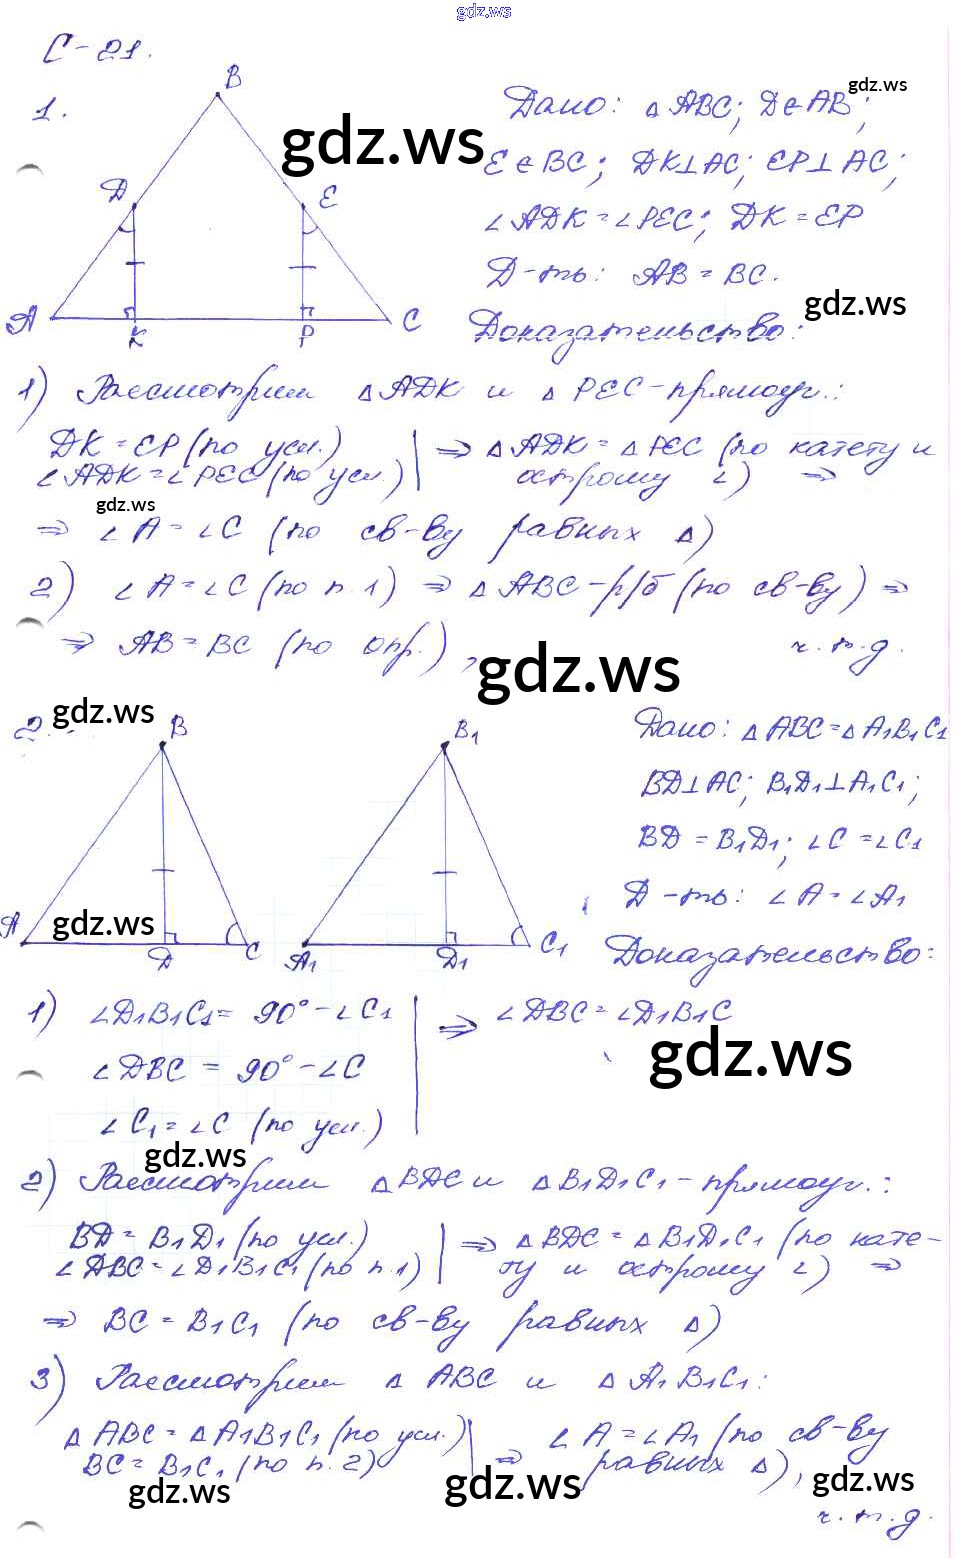 gdz.ws
С-21.
1.
gdz.ws
B
Д
E
A
K
P
C
gdz.ws
Дано: △ ABC; Д∈AB;
E∈BC; ДK⊥AC; EP⊥AC;
∠АДK=∠PEC; ДK=EP
Д-ть: AB=BC.
gdz.ws
Доказательство:
1) Рассмотрим △ АДK и △ PEC-прямоуг.:
ДK=EP (по усл.)
∠АДK=∠PEC (по усл.) | ⇒ △ АДK=△ PEC (по катету и
острому ∠) ⇒
gdz.ws
⇒ ∠A=∠C (по св-ву равных △)
2) ∠A=∠C (по п.1) ⇒ △ ABC-р/б (по св-ву) ⇒
⇒ AB=BC (по опр.), ч.т.д.
gdz.ws
2.
gdz.ws
B
A
Д
C
gdz.ws
B1
A1
Д1
C1
Дано: △ ABC=△ A1B1C1
BД⊥AC; B1Д1⊥A1C1;
BД=B1Д1; ∠C=∠C1
Д-ть: ∠A=∠A1
Доказательство:
1) ∠Д1B1C1= 90°-∠C1
∠ДBC = 90°-∠C
∠C1=∠C (по усл.) | ⇒ ∠ДBC=∠Д1B1C
gdz.ws
gdz.ws
2) Рассмотрим △ BДC и △ B1Д1C1-прямоуг.:
BД=B1Д1 (по усл.)
∠ДBC=∠Д1B1C1 (по п.1) | ⇒ △ BДC=△ B1Д1C1 (по кате-
ту и острому ∠) ⇒
⇒ BC=B1C1 (по св-ву равных △)
3) Рассмотрим △ ABC и △ A1B1C1:
△ ABC=△ A1B1C1 (по усл.)
BC=B1C1 (по п.2) | ⇒ ∠A=∠A1 (по св-ву
равных △),
gdz.ws
gdz.ws
gdz.ws
ч.т.д.